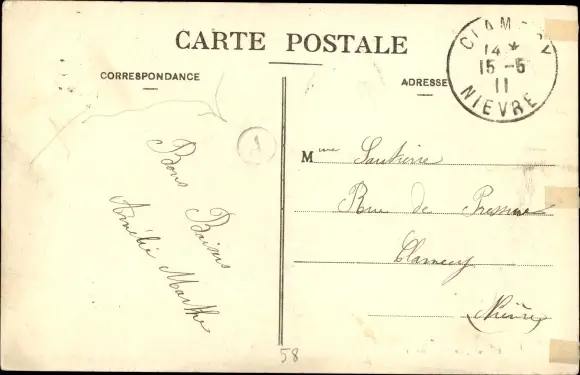 CARTE POSTALE
CORRESPONDANCE
ADRESSE
CLAMECY
14 *
15 -5
11
NIEVRE
1
Bons Baisers
Amélie Marthe
Mme
Rue de
Clamecy
Nièvre
58